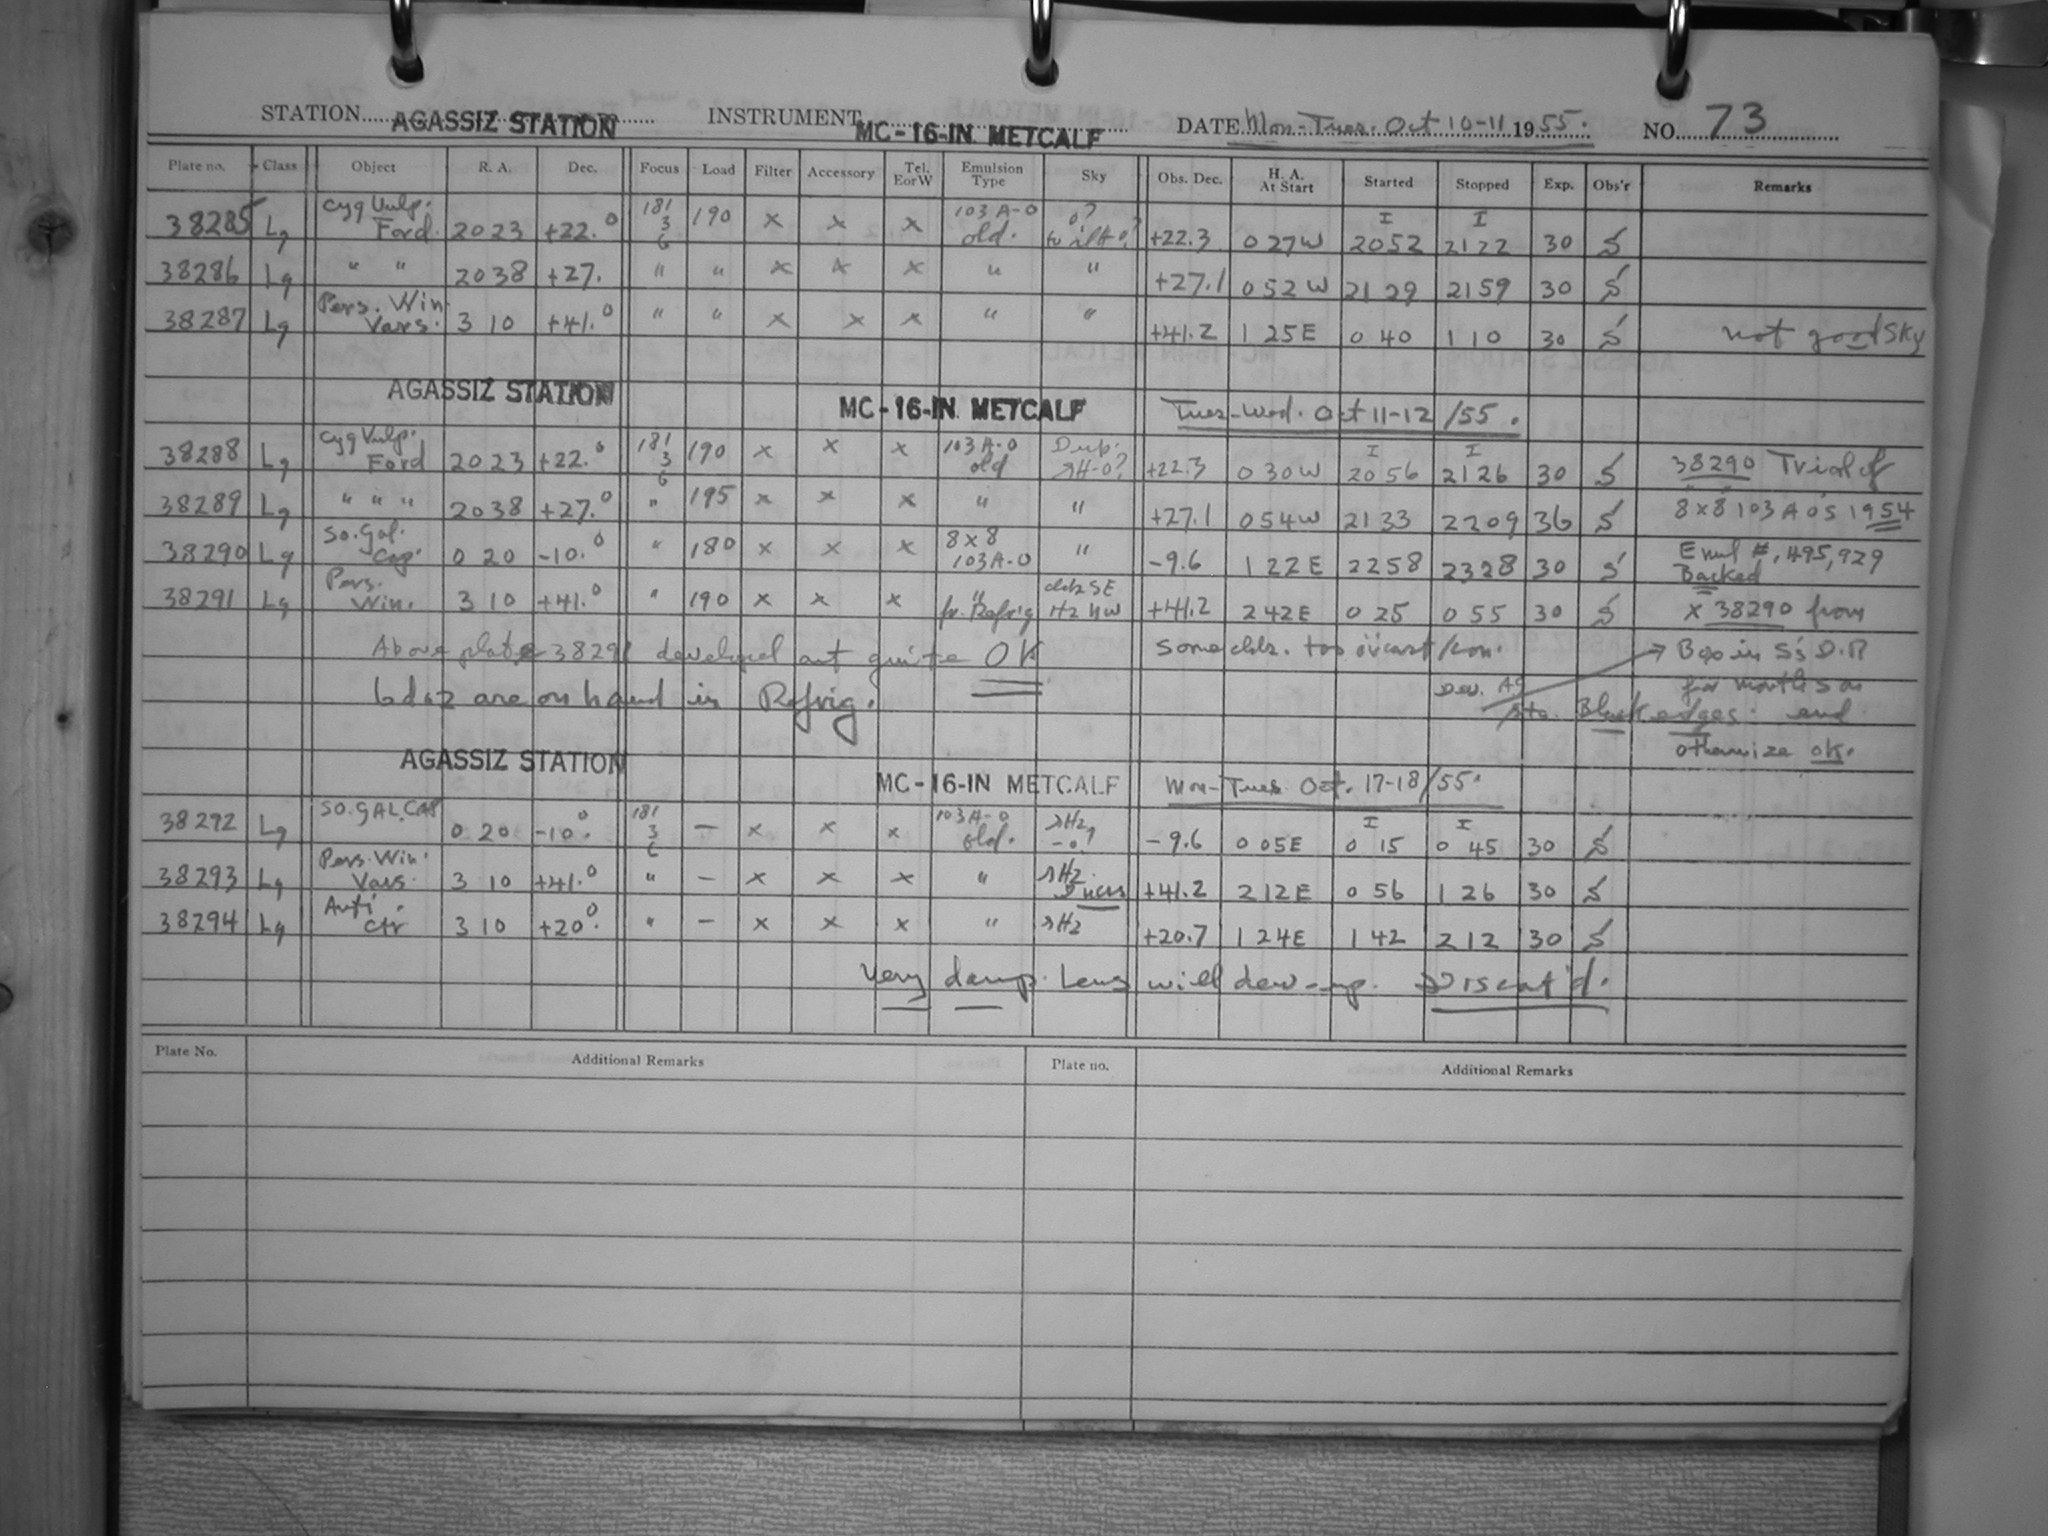 STATION AGASSIZ STATION INSTRUMENT MC-16-IN METCALF DATE Mon-Tues. Oct 10-11 1955. NO. 73
Plate no. Class Object R. A. Dec. Focus Load Filter Accessory Tel. E or W Emulsion Type Sky Obs. Dec. H. A. At Start Started Stopped Exp. Obs'r Remarks
38285 Lg Cyg Vulp. Ford. 20 23 +22.0 181 3 6 190 x x x 103 A-O old. +22.3 0 27W I 20 52 I 21 22 30 S
38286 Lg " " 20 38 +27. " " x x x " " +27.1 0 52 W 21 29 21 59 30 S
38287 Lg Pers. Win Vars. 3 10 +41.0 " " x x x " " +41.2 1 25E 0 40 1 10 30 S not good Sky
AGASSIZ STATION MC-16-IN METCALF Tues-Wed. Oct 11-12/55.
38288 Lg Cyg Vulp. Ford 20 23 +22.0 181 3 6 190 x x x 103 A-O old +22.3 0 30W I 20 56 I 21 26 30 S 38290 Trial of
38289 Lg " " " 20 38 +27.0 " 195 x x x " " +27.1 0 54W 21 33 22 09 36 S 8x8 103 AO's 1954
38290 Lg So. Gal. Cap. 0 20 -10.0 " 180 x x x 8x8 103A-O " -9.6 1 22E 22 58 23 28 30 S Emul #, 495,929 Backed
38291 Lg Pers. Win. 3 10 +41.0 " 190 x x x " fr. Refrig clds SE Hz NW +41.2 2 42E 0 25 0 55 30 S x 38290 from
Above plate 38291 developed out quite OK some clds. too
6 doz are on hand in Refrig. Black edges. and
otherwize ok.
AGASSIZ STATION MC-16-IN METCALF Mon-Tues Oct. 17-18/55.
38292 Lg SO. GAL. CAP 0 20 -10.0 181 3 6 – x x x 103 A-O old. -9.6 0 05E I 0 15 I 0 45 30 S
38293 Lg Pers. Win. Vars. 3 10 +41.0 " – x x x " +41.2 2 12E 0 56 1 26 30 S
38294 Lg Anti. Ctr 3 10 +20.0 " – x x x " +20.7 1 24E 1 42 2 12 30 S
Very damp. Lens will dew-up. Discont'd.
Plate No. Additional Remarks Plate no. Additional Remarks